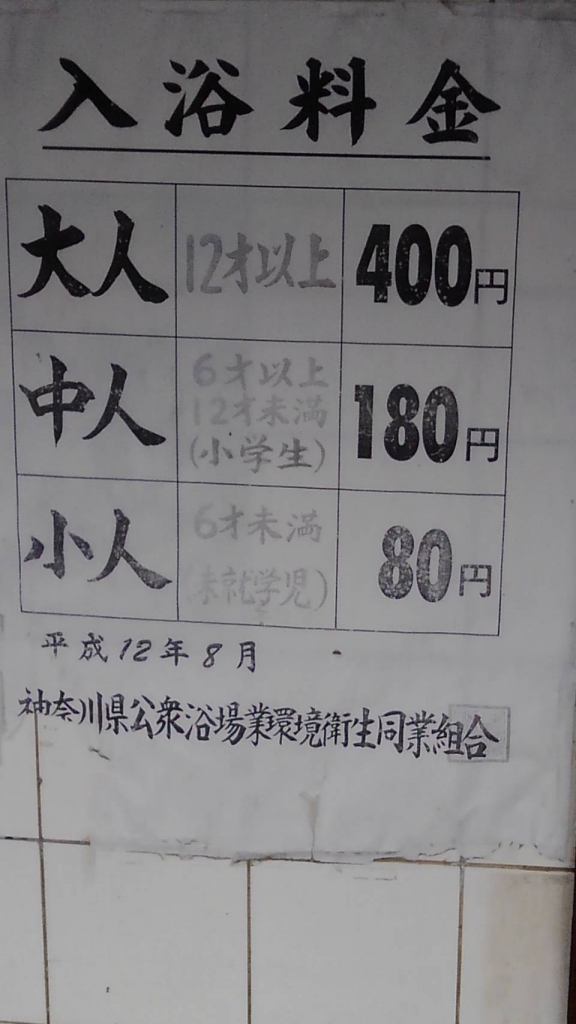 入浴料金
大人 12才以上 400円
中人 6才以上
12才未満
(小学生) 180円
小人 6才未満
(未就学児) 80円
平成12年8月
神奈川県公衆浴場業環境衛生同業組合